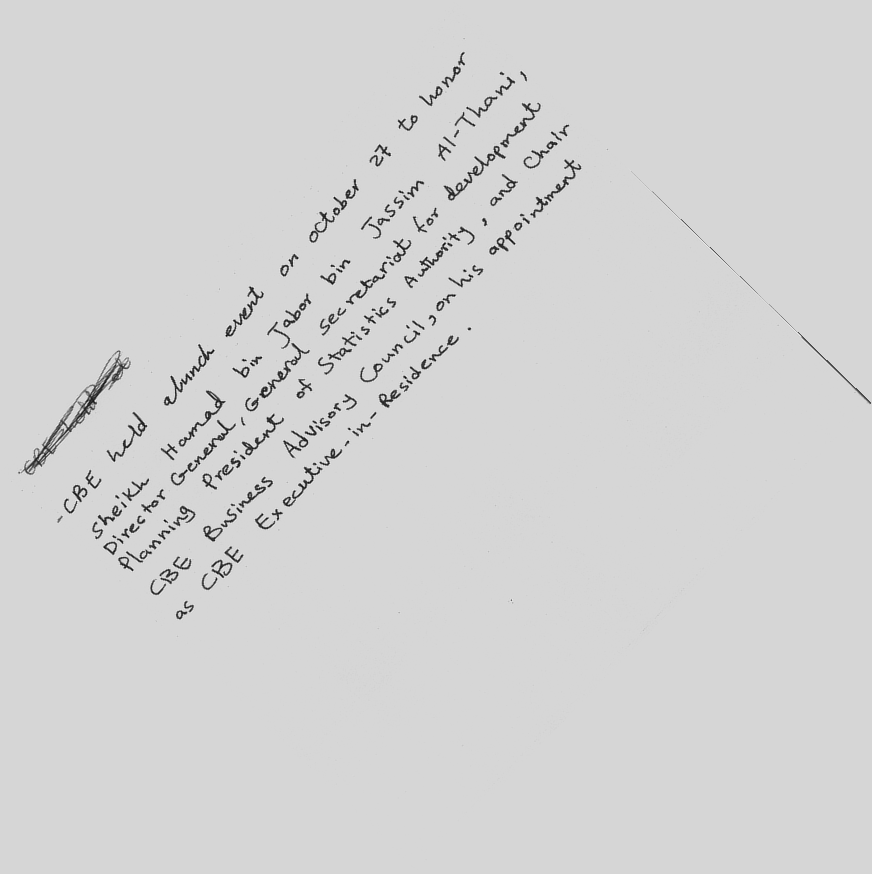 -CBE held alunch event on october 27 to honor
Sheikh Hamad bin Jabor bin Jassim Al-Thani,
Director General, General secretariat for development
Planning President of Statistics Authority, and Chair
CBE Business Advisory Council, on his appointment
as CBE Executive-in-Residence.